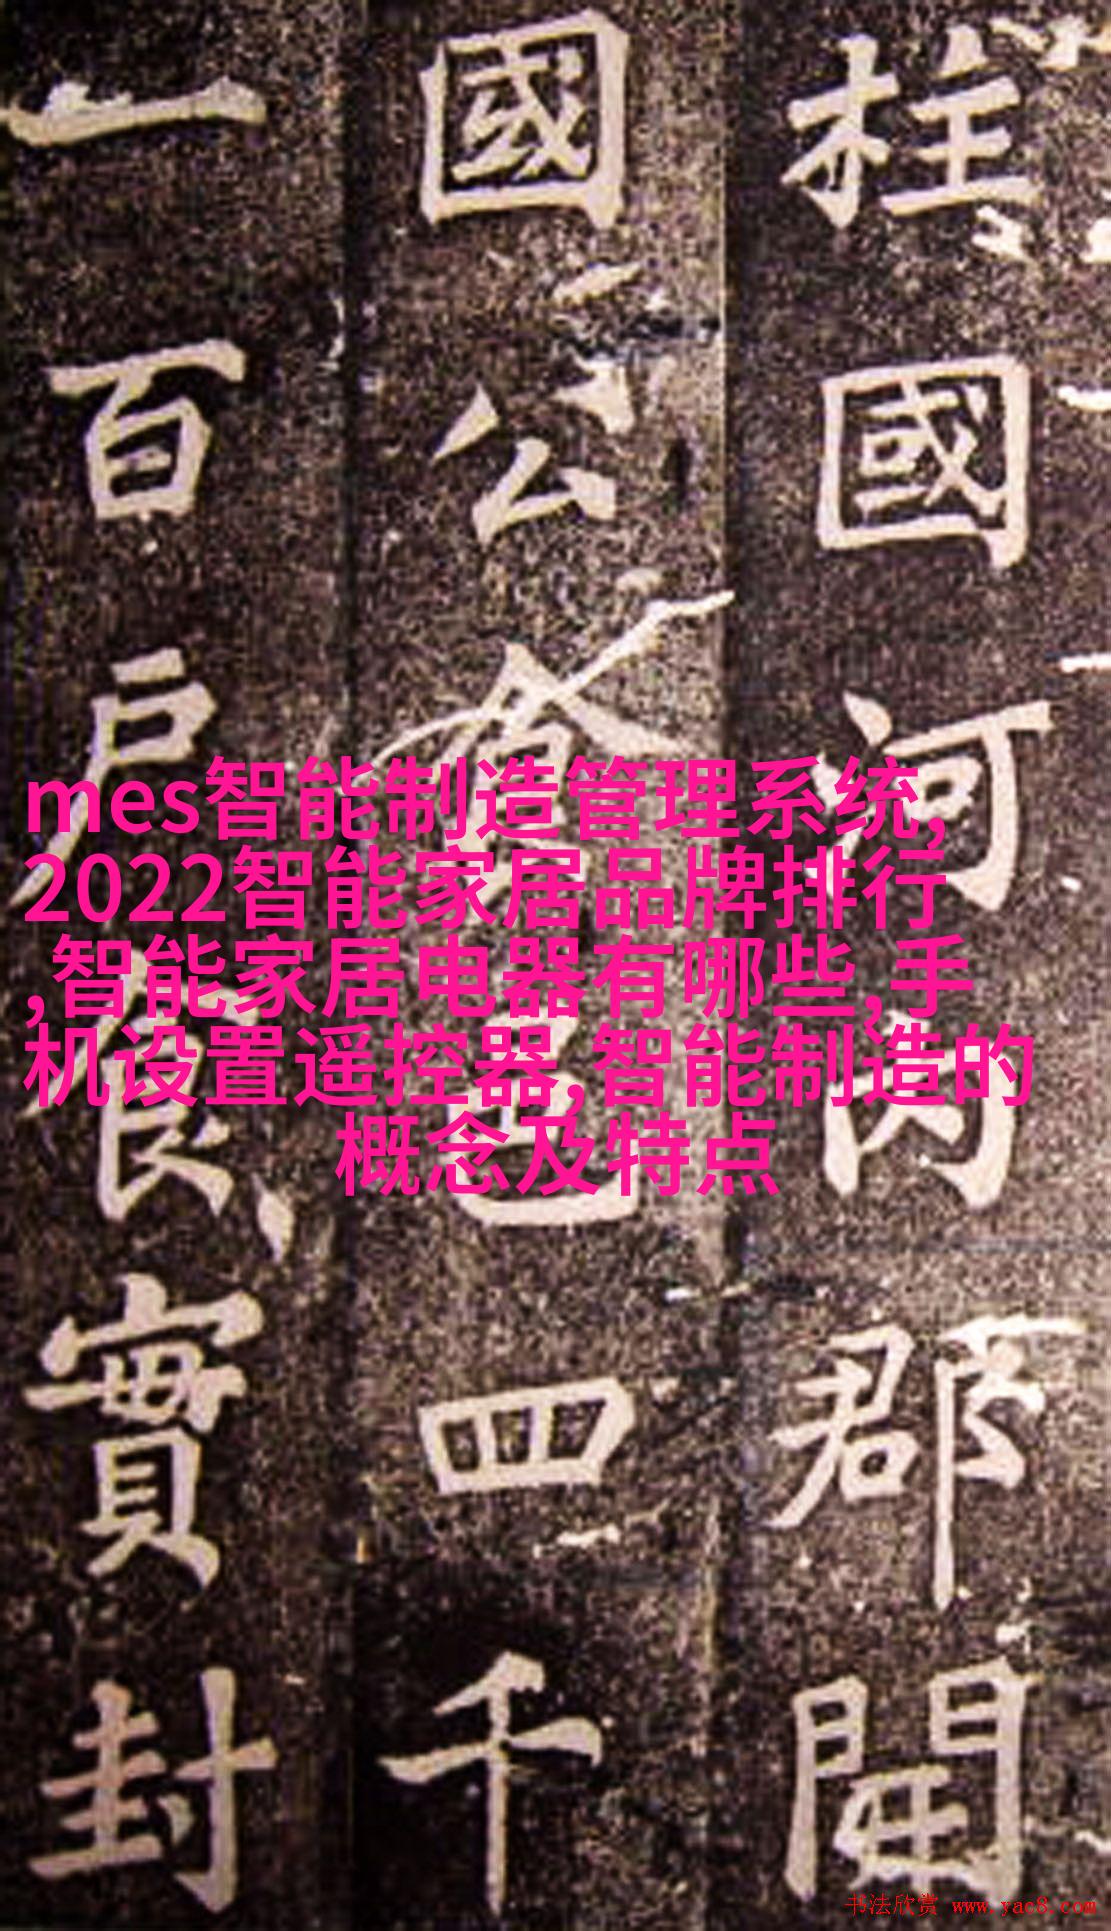 柱國河内郡開
國公食邑四千
一百戶食實封
mes智能制造管理系统,
2022智能家居品牌排行
,智能家居电器有哪些,手
机设置遥控器,智能制造的
概念及特点
书法欣赏 www.yac8.com